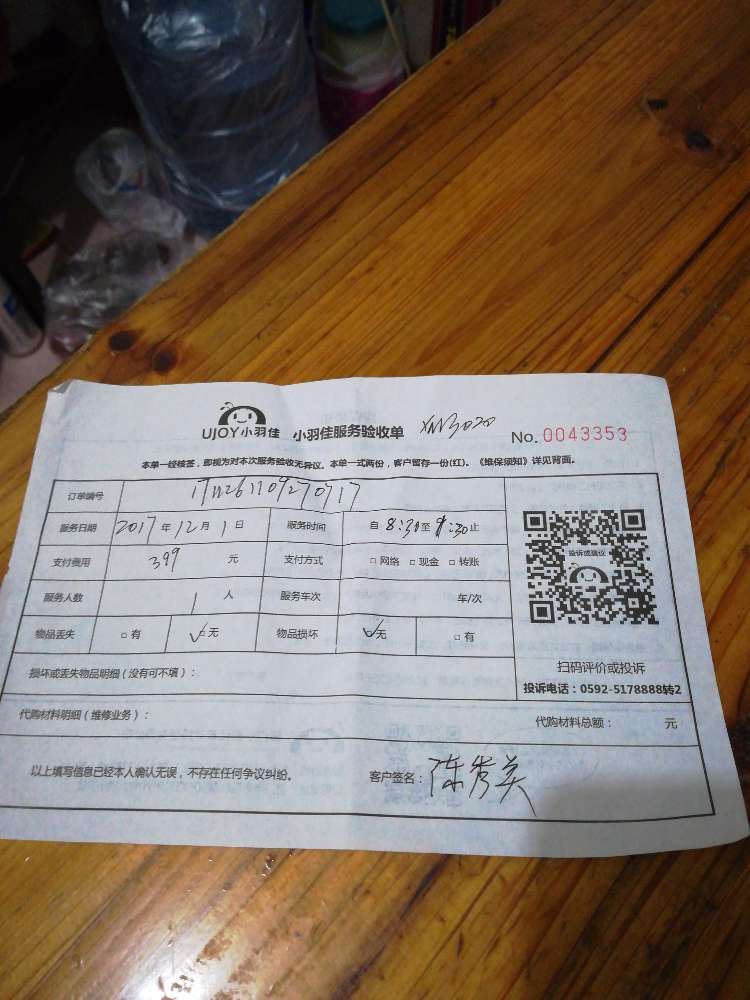 UJOY小羽佳 小羽佳服务验收单 XM3020 No. 0043353
本单一经核签，即视为对本次服务验收无异议。本单一式两份，客户留存一份(红)。《维保须知》详见背面。
订单编号 1711261109270717
服务日期 2017 年 12 月 1 日 服务时间 自 8:30 至 9:30 止
支付费用 399 元 支付方式 □ 网络 □ 现金 □ 转账
服务人数 1 人 服务车次 车/次
物品丢失 □ 有 ☑ 无 物品损坏 ☑ 无 □ 有
投诉或建议
扫码评价或投诉
投诉电话：0592-5178888转2
损坏或丢失物品明细（没有可不填）：
代购材料明细（维修业务）： 代购材料总额： 元
以上填写信息已经本人确认无误，不存在任何争议纠纷。 客户签名：陈秀英